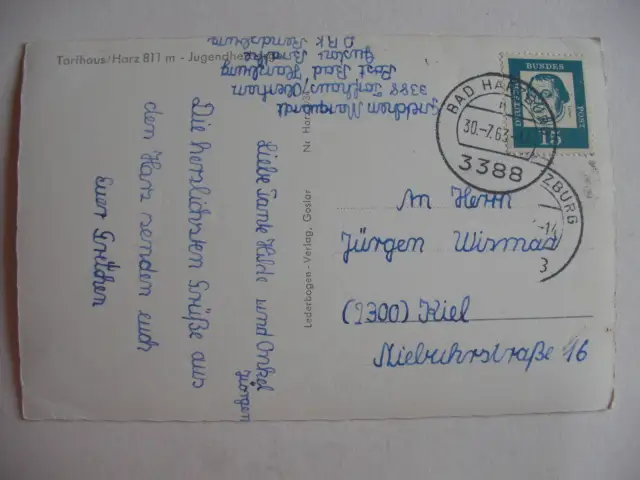 Torfhaus/Harz 811 m - Jugendhe
Gretchen Marquardt
3388 Torfhaus/Oberharz
Post Bad Harzburg
Gustav
DRK Rendsburg
Liebe Tante Hilde und Onkel
Jürgen
Die herzlichsten Grüße aus
dem Harz senden euch
Euer Gretchen
Lederbogen - Verlag, Goslar
Nr Harz
DEUTSCHE
BUNDES
POST
15
BAD HARZBURG
30.-7.63
3388
ZBURG
3
An Herrn
Jürgen Wismad
(2300) Kiel
Niebuhrstraße 16